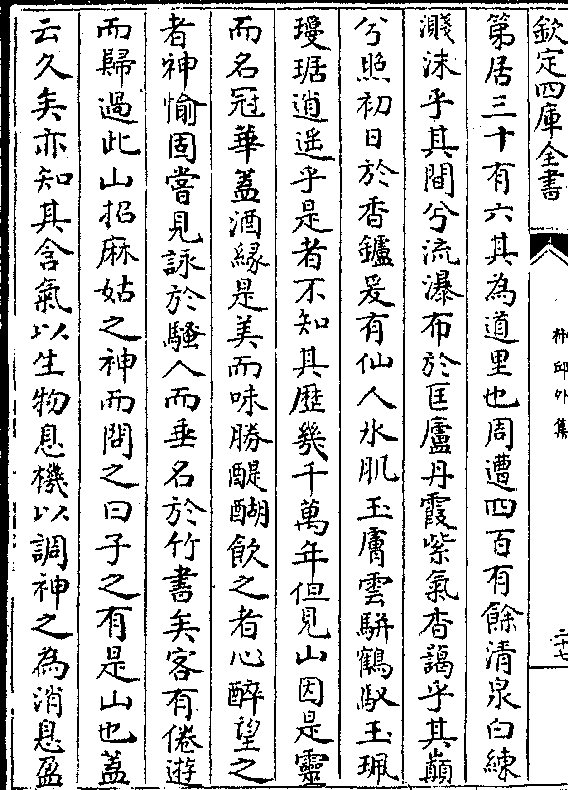 欽定四庫全書
外集
二十七
第居三十有六其為道里也周遭四百有餘清泉白練
濺沫乎其間兮流瀑布於匡廬丹霞紫氣杳靄乎其巔
兮照初日於香鑪爰有仙人氷肌玉膚雲駢鶴馭玉珮
瓊琚逍遥乎是者不知其歴幾千萬年但見山因是靈
而名冠華蓋酒緣是美而味勝醍醐飲之者心醉望之
者神愉固嘗見詠於騷人而垂名於竹書矣客有倦遊
而歸過此山招麻姑之神而問之曰子之有是山也蓋
云久矣亦知其含氣以生物息機以調神之為消息盈